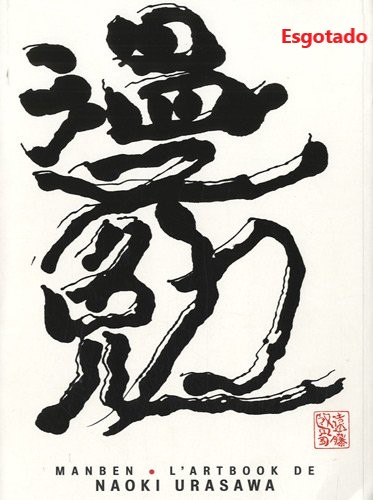 Esgotado
漫勉
MANBEN • L'ARTBOOK DE
NAOKI URASAWA